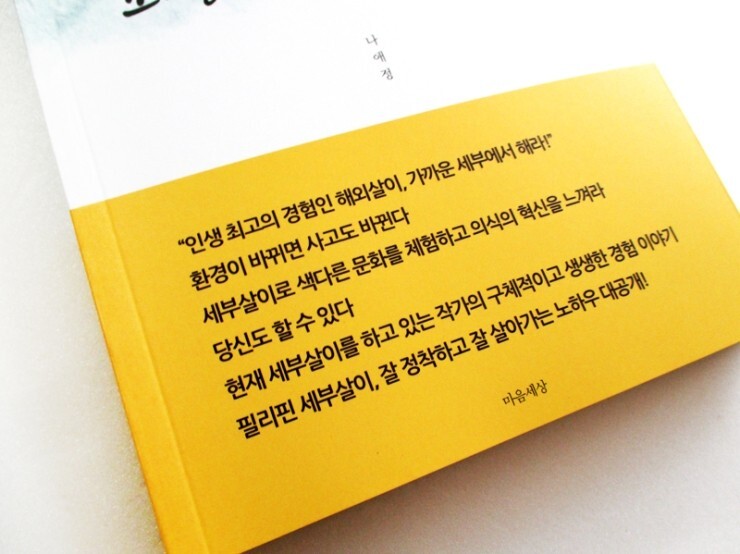 나애정
“인생 최고의 경험인 해외살이, 가까운 세부에서 해라!”
환경이 바뀌면 사고도 바뀐다
세부살이로 색다른 문화를 체험하고 의식의 혁신을 느껴라
당신도 할 수 있다
현재 세부살이를 하고 있는 작가의 구체적이고 생생한 경험 이야기
필리핀 세부살이, 잘 정착하고 잘 살아가는 노하우 대공개!
마음세상